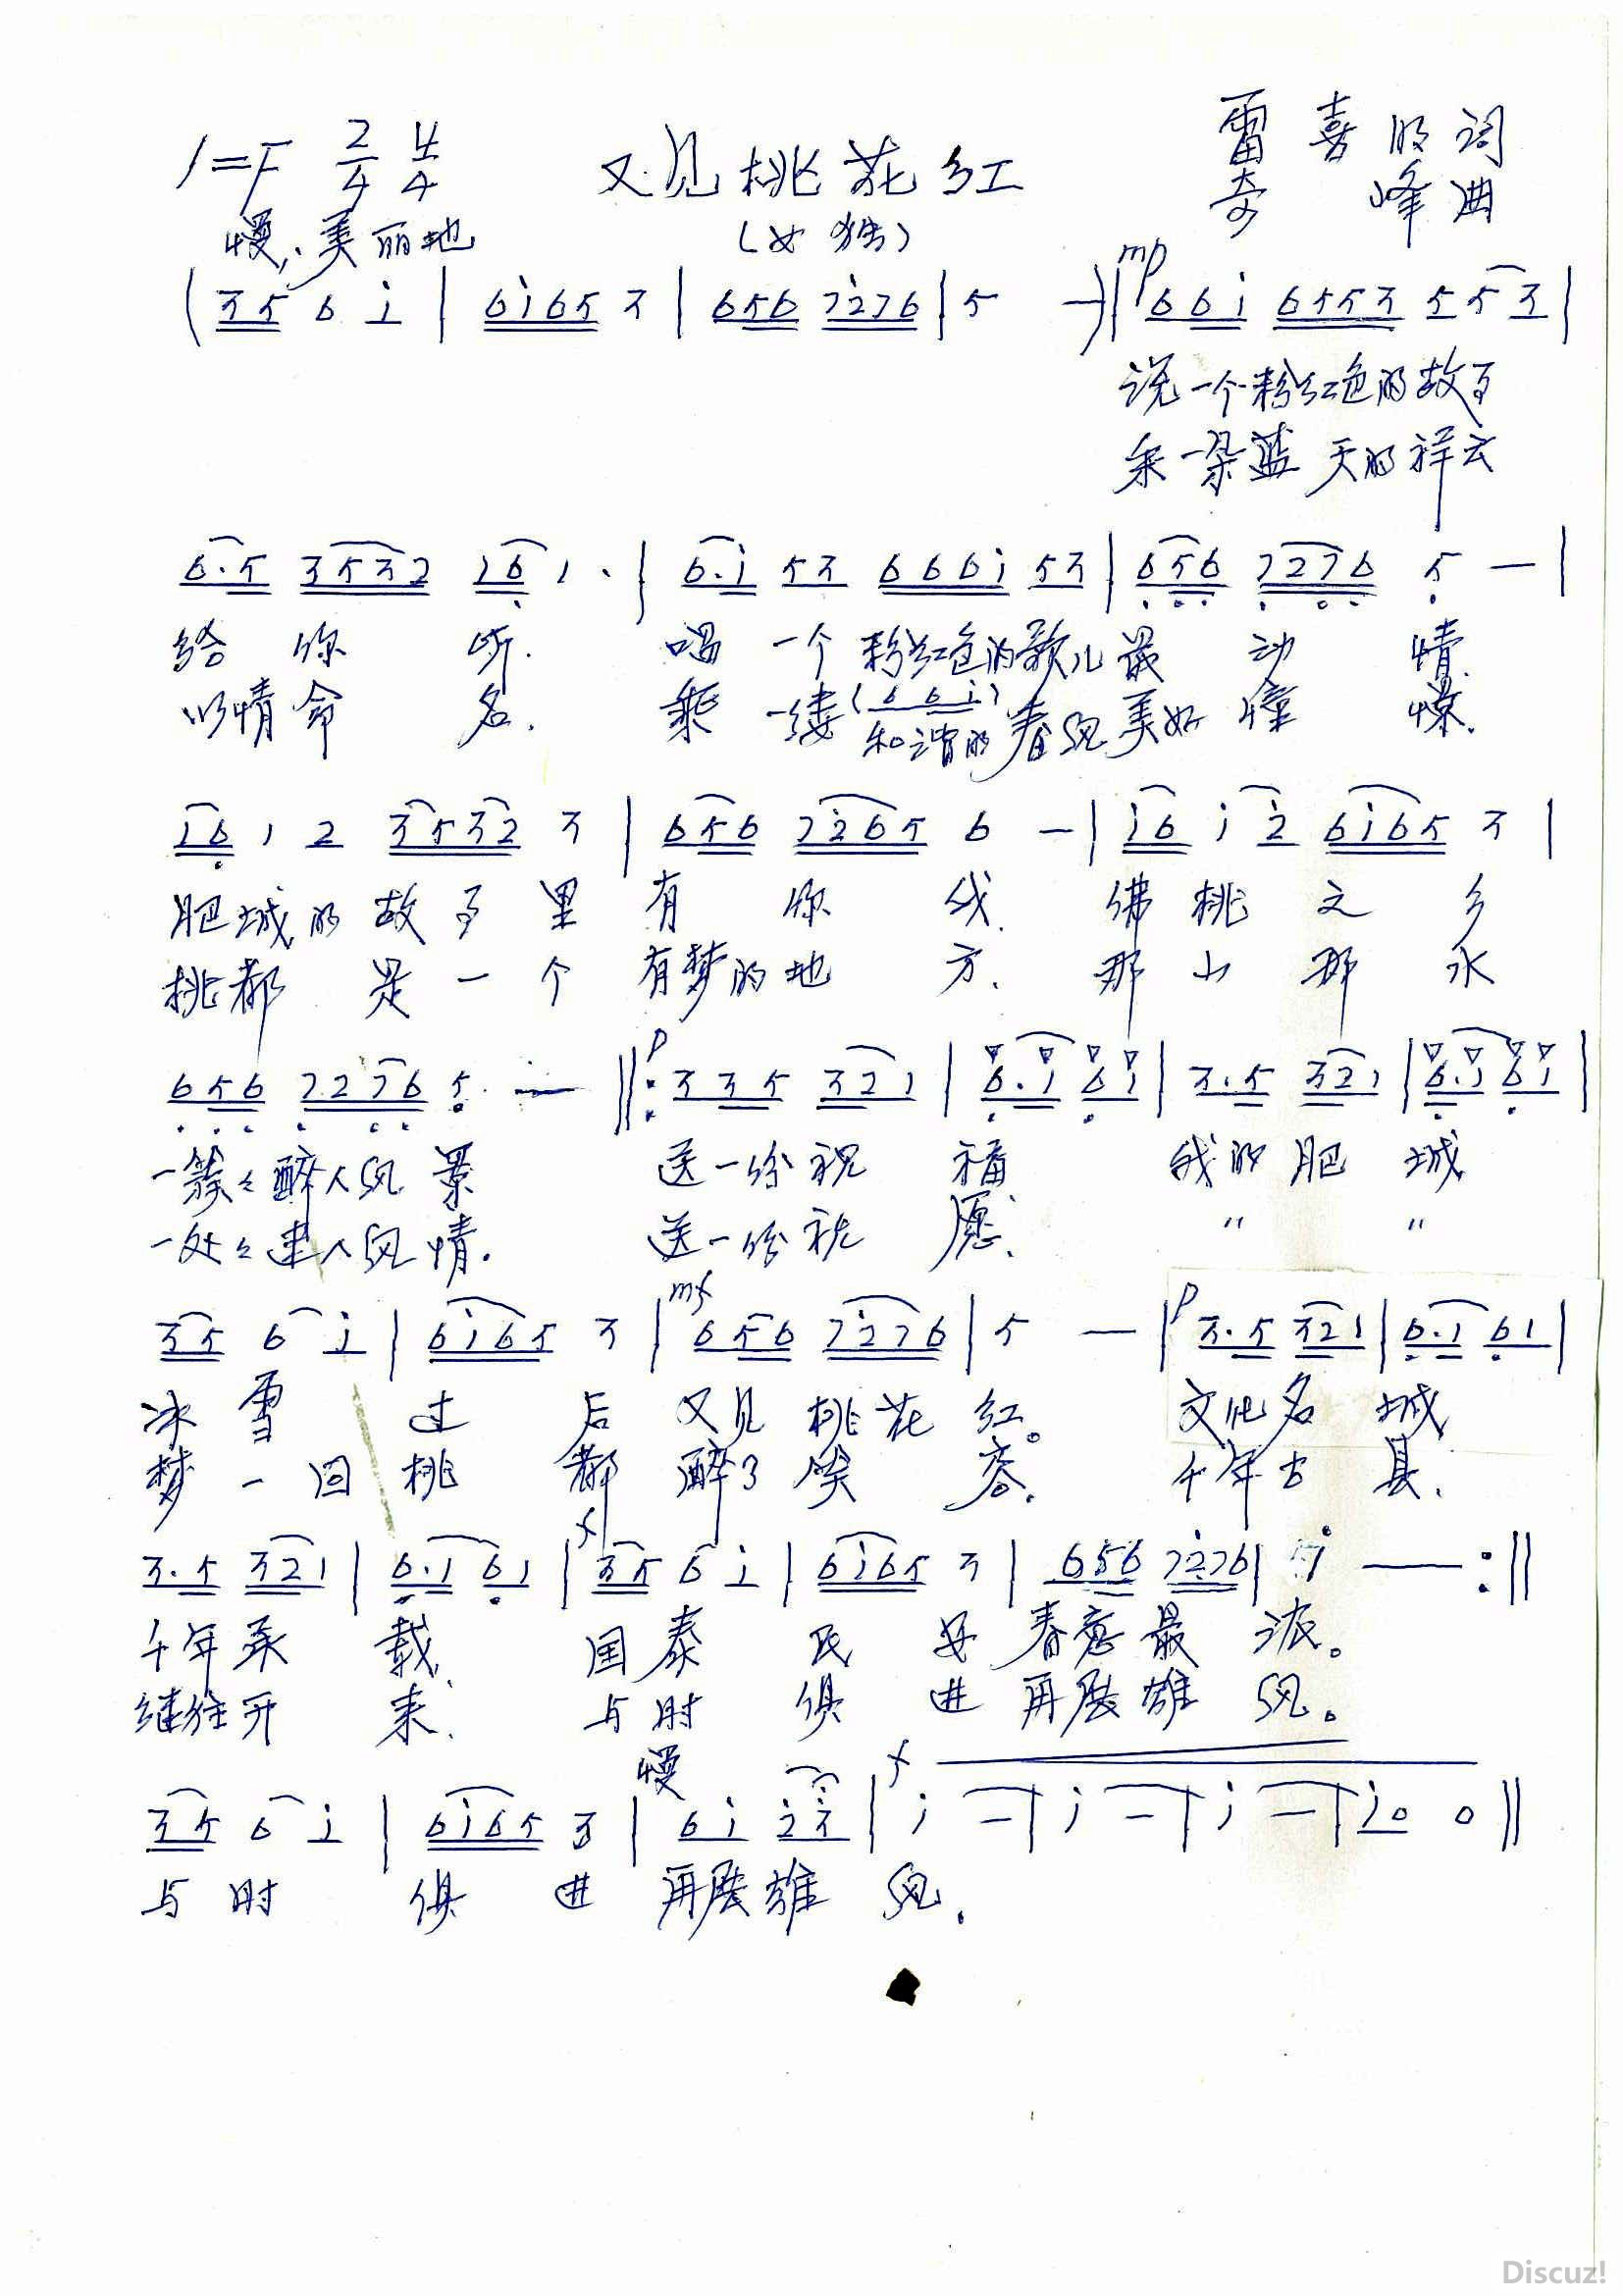 1=F 2/4 4/4 又见桃花红 雷喜明词
奇峰曲
慢、美丽地 (女独)
(35 6 i | 6i65 3 | 656 7276 | 5 —)| mp 66i 6553 553 |
说一个粉红色的故事
采一朵蓝天的祥云
6.5 3532 16 1. | 6.i 53 666i 53 | 656 7276 5 — |
给你听. 唱一个粉红色的歌儿最动情.
以情命名. 乘一缕(66i)和谐的春风美好憧憬.
16 1 2 3532 3 | 656 7265 6 — | i6 i 2 6i65 3 |
肥城的故事里有你我. 佛桃之乡
桃都是一个有梦的地方. 那山那水
656 7276 5 — ‖: p 335 321 | 6.1 61 | 3.5 321 | 6.1 61 |
一簇々醉人风景 送一份祝福 我的肥城
一处々迷人风情. 送一份祝愿. " "
35 6 i | 6i65 3 | mf 656 7276 | 5 — | p 3.5 321 | 6.1 61 |
冰雪过后又见桃花红。 文化名城
梦一回桃都醉了笑容. 千年古县.
3.5 321 | 6.1 61 | f 35 6 i | 6i65 3 | 656 7276 | i — :‖
千年承载, 国泰民安春意最浓。
继往开来. 与时俱进再展雄风。
慢 f
35 6 i | 6i65 3 | 6i 23 | i — | i — | i — | i0 0 ‖
与时俱进再展雄风.
Discuz!